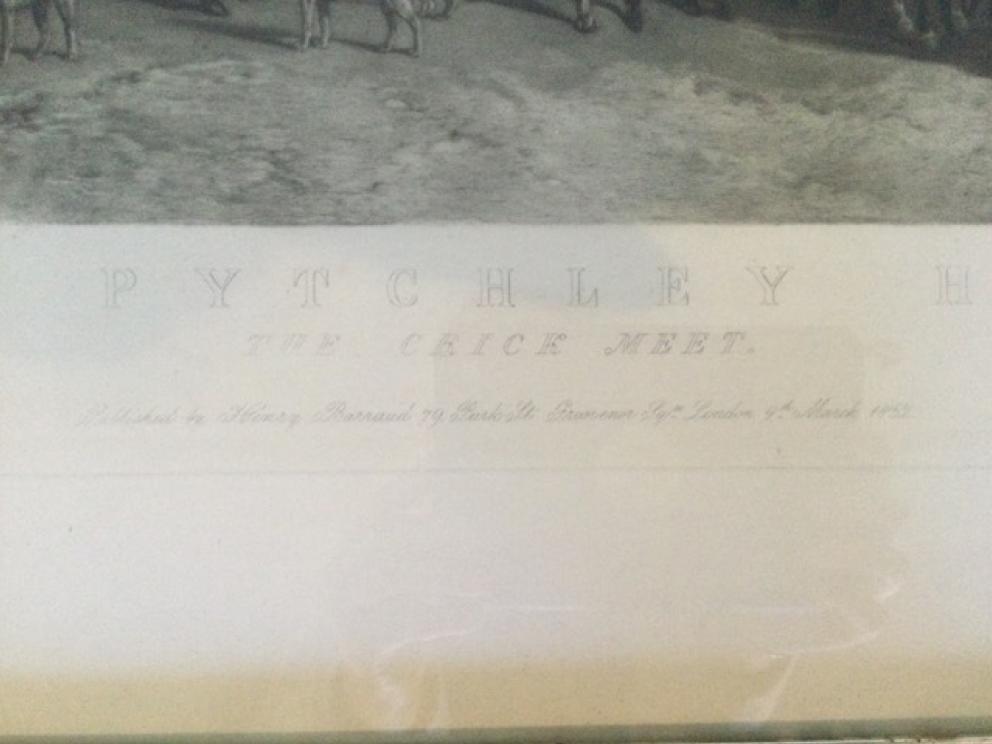 PYTCHLEY H
THE CRICK MEET.
Published by Henry Barraud 79, Park St. Grosvenor Sqre. London 9th March